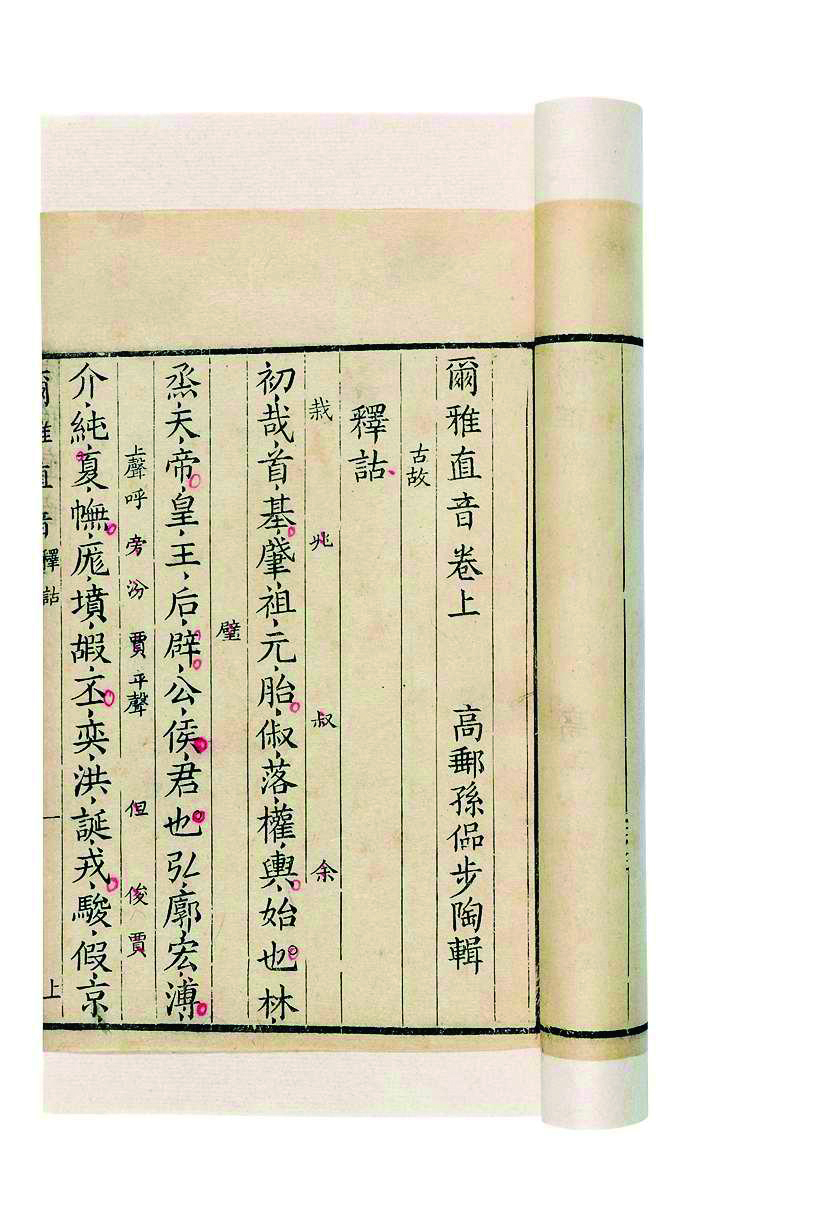 爾雅直音卷上 高郵孫偘步陶輯
古故
釋詁
栽 兆 叔 余
初哉首基肇祖元胎俶落權輿始也林
璧
烝天帝皇王后辟公侯君也弘廓宏溥
上聲呼 旁 汾 賈平聲 但 俊 賈
介純夏幠厖墳嘏丕奕洪誕戎駿假京
爾雅直音 釋詁 一 上